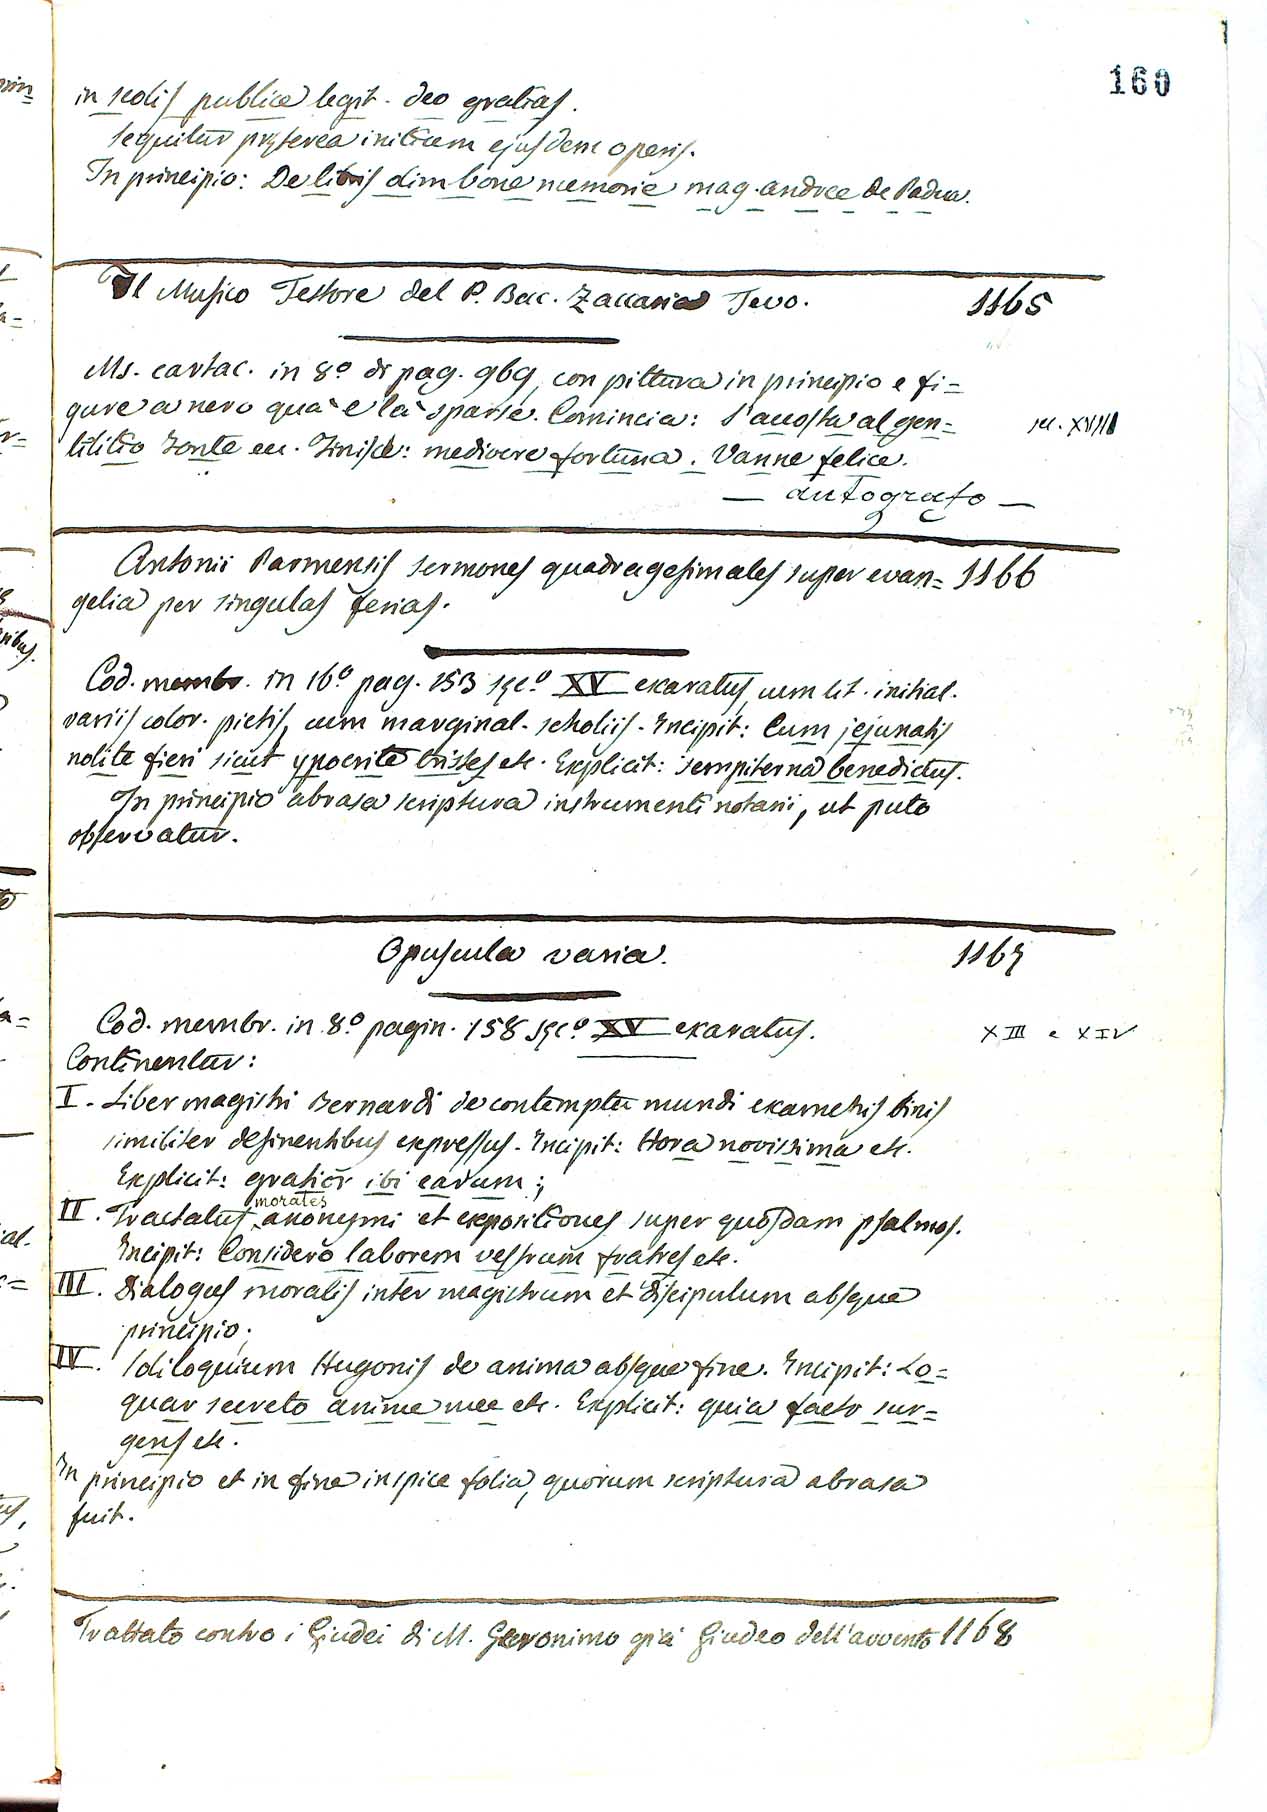 160
in scolis publice legit. deo gratias.
sequitur pręterea initium ejusdem operis.
In principio: De libris olim bone memorie mag. andree de Padua.
Il Musico Testore del P. Bac. Zaccaria Tevo. 1165
Ms. cartac. in 8.º di pag. 969, con pittura in principio e fi=
gure a nero quà e là sparse. Comincia: S'accosta al gen=
tilitio fonte ec. Finisce: mediocre fortuna. Vanne felice. sec. XVIII
— autografo —
Antonii Parmensis sermones quadragesimales super evan= 1166
gelia per singulas ferias.
Cod. membr. in 16.º pag. 153 sęc.º XV exaratus, cum lit. initial.
variis color. pictis, cum marginal. scholiis. Incipit: Cum jejunatis
nolite fieri sicut ypocrite tristes etc. Explicit: sempiterna benedictus.
In principio abrasa scriptura instrumenti notarii, ut puto
observatur.
Opuscula varia. 1167
Cod. membr. in 8.º pagin. 158 sęc.º XV exaratus. XIII e XIV
Continentur:
I. Liber magistri Bernardi de contemptu mundi exametris binis
similiter desinentibus expressus. Incipit: Hora novissima etc.
Explicit: gratior ibi earum;
morales
II. Tractatus anonymi et expositiones super quosdam psalmos.
Incipit: Considero laborem vestrum fratres etc.
III. Dialogus moralis inter magistrum et discipulum absque
principio;
IV. Soliloquium Hugonis de anima absque fine. Incipit: Lo=
quar secreto anime mee etc. Explicit: quia facto sur=
gens etc.
In principio et in fine inspice folia, quorum scriptura abrasa
fuit.
Trattato contro i Giudei di M. Geronimo già Giudeo dell'avvento 1168